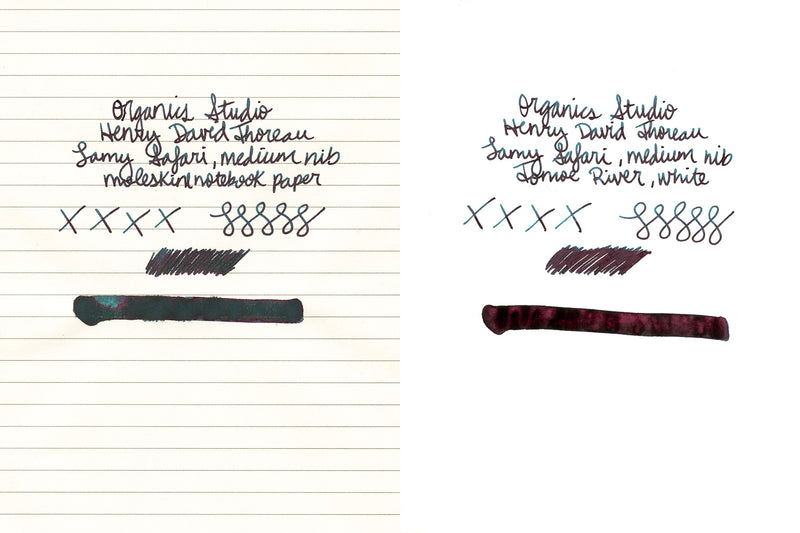 Organics Studio
Henry David Thoreau
Lamy Safari, medium nib
moleskine notebook paper
X X X X
Organics Studio
Henry David Thoreau
Lamy Safari, medium nib
Tomoe River, white
X X X X